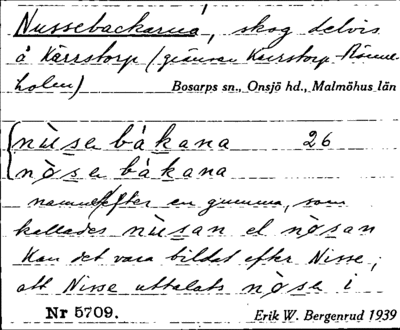 Nussebackarna, skog delvis
å Kärrstorp (gränsen Kärrstorp Rönne-
holm) Bosarps sn., Onsjö hd., Malmöhus län
nùse bákana 26
nòse bákana
namnet efter en gumma, som
kallades nùsan el nòsan
Kan det vara bildat efter Nisse;
att Nisse uttalats nòse i
Nr 5709. Erik W. Bergenrud 1939